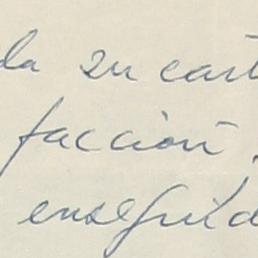 da su cart
facción,
enseguid